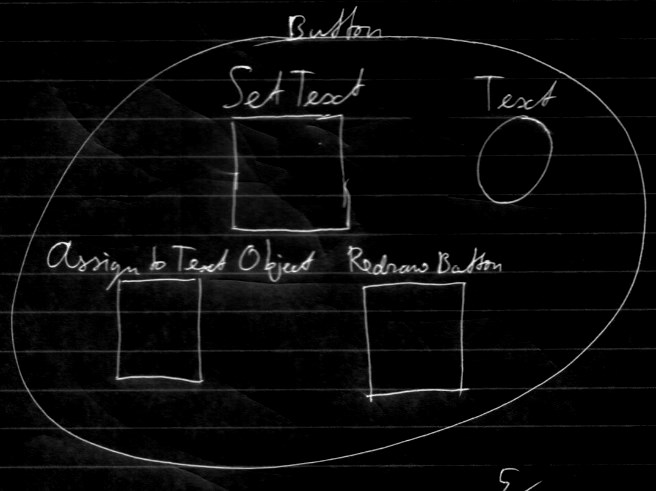 Button
Set Text
Text
Assign to Text Object
Redraw Button
5